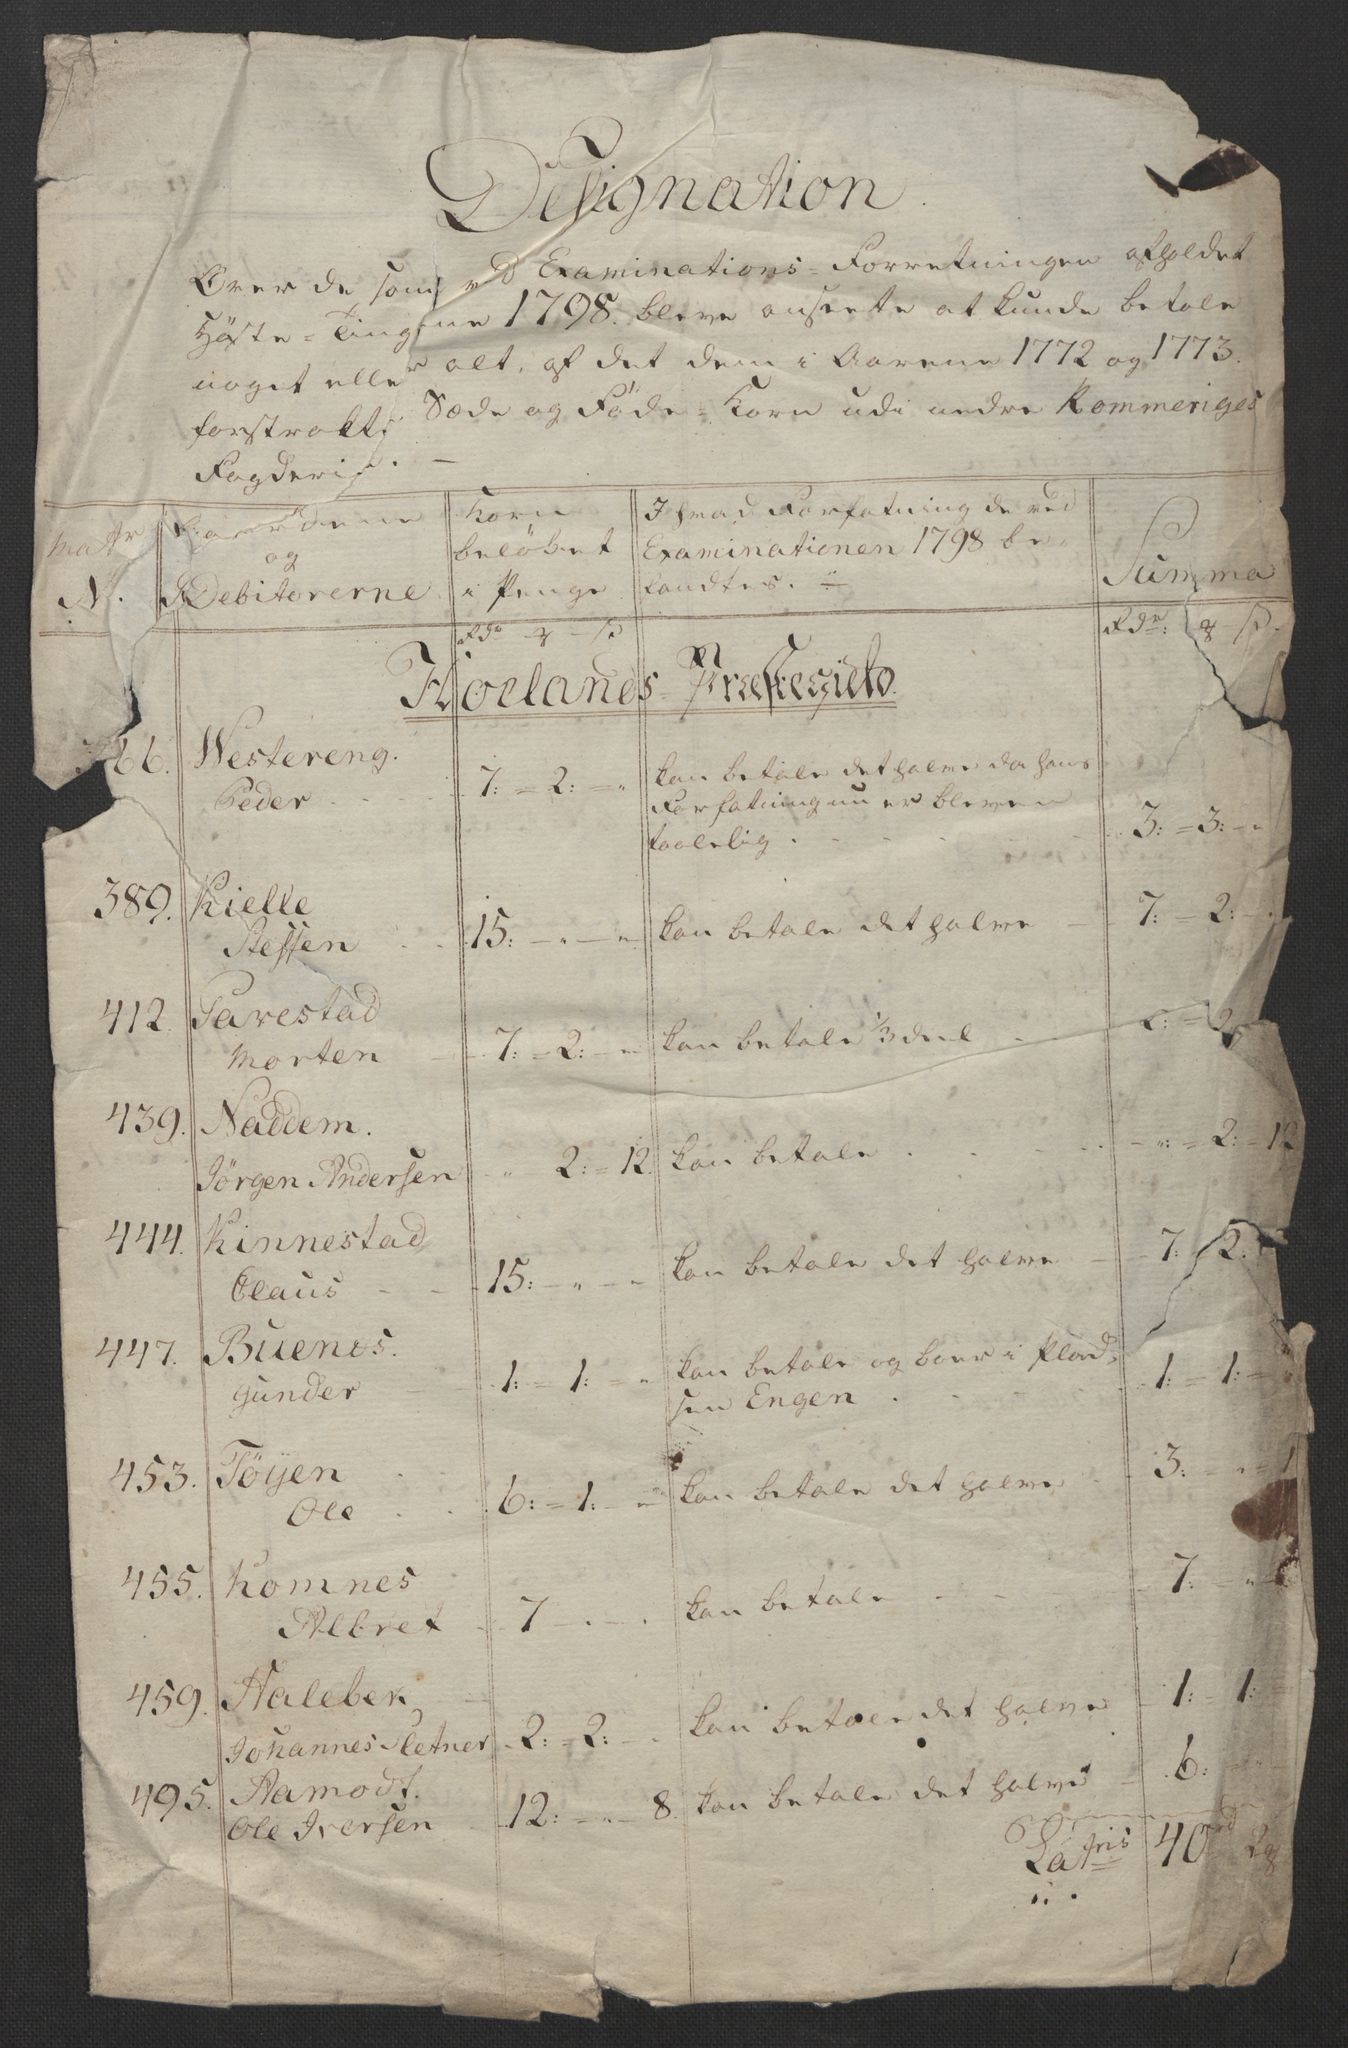 Designation
Over de som ved Examinations-Forretningen afholdet
Höste-Tingene 1798. bleve anseete at kunde betale
noget eller alt, af det dem i Aarene 1772 og 1773.
forstrakte Sæde og Föde-Korn udi nedre Rommeriges
Fogderie. —
Matr N. Gaardene og Debitorerne Korn beløbet i Penge I hvad Forfatning de ved Examinationen 1798 befandtes. Summa
Rdr Rdr:
Hoelands Præstegield.
66. Westereng.
Peder 7: = 2: = " kan betale det halve da hans
Forfatning nu er bleven
taalelig. 3: = 3: — "
389. Kielle
Steffen 15: — " — " kan betale det halve 7: = 2: —
412. Tarestad
Morten 7: = 2: — " kan betale 1/3 deel 2: = 2
439. Naddem.
Jörgen Andersen " 2: = 12. kan betale ": = 2: = 12
444. Kinnestad
Claus 15: — " — " kan betale det halve 7: 2:
447. Buenes.
Gunder 1: = 1: = " kan betale og boer i Plad-
sen Engen. 1: = 1: =
453. Töyen
Ole 6: = 1: — " kan betale det halve 3: — " = 1
455. Komnes
Albret 7 — " — " kan betale 7: — " —
459. Halebek
Johannes Sletner 2: = 2: — " kan betale det halve 1: = 1: =
495. Aamodt.
Ole Iversen 12: — " — 8. kan betale det halve 6: = "
Latris 40 rd 2